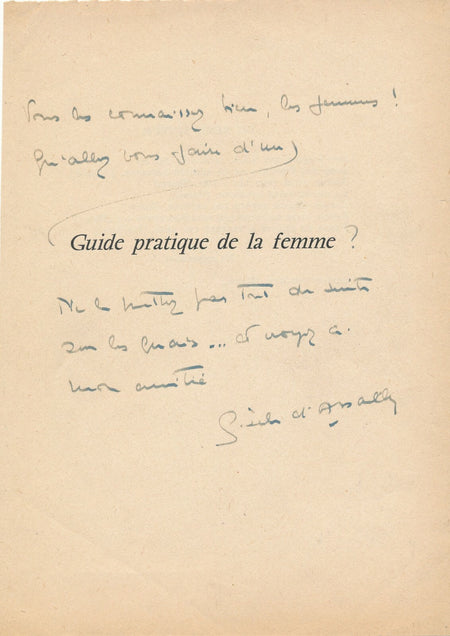 Vous les connaissez bien, les femmes !
Qu'allez vous faire d'un
Guide pratique de la femme ?
Ne le mettez pas tout de suite
sur les quais ... et croyez à
mon amitié
Gisèle d'Assailly